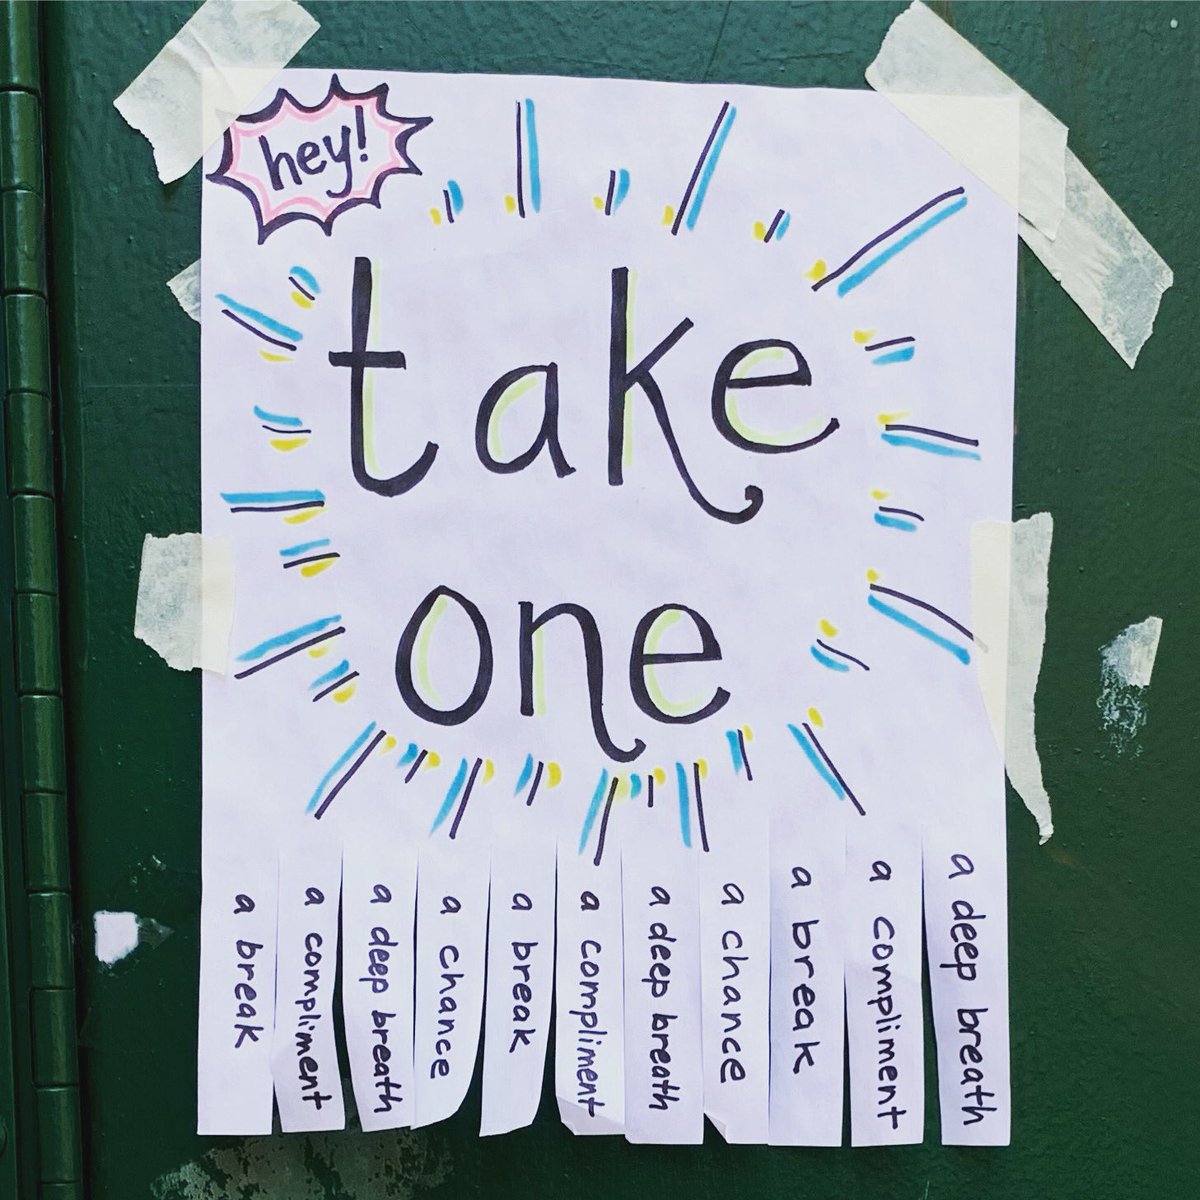 hey!
take
one
a break
a compliment
a deep breath
a chance
a break
a compliment
a deep breath
a chance
a break
a compliment
a deep breath